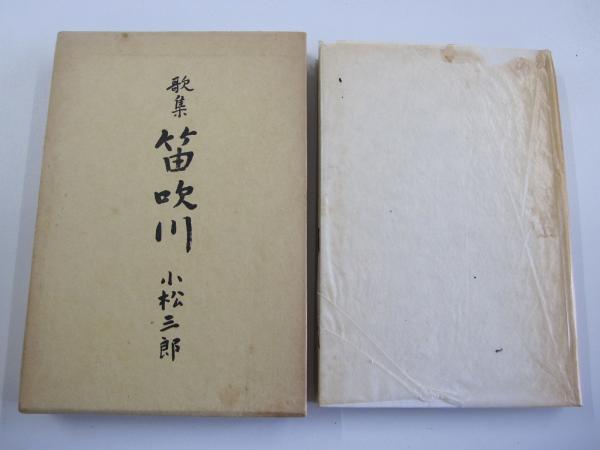 歌集
笛吹川
小松三郎